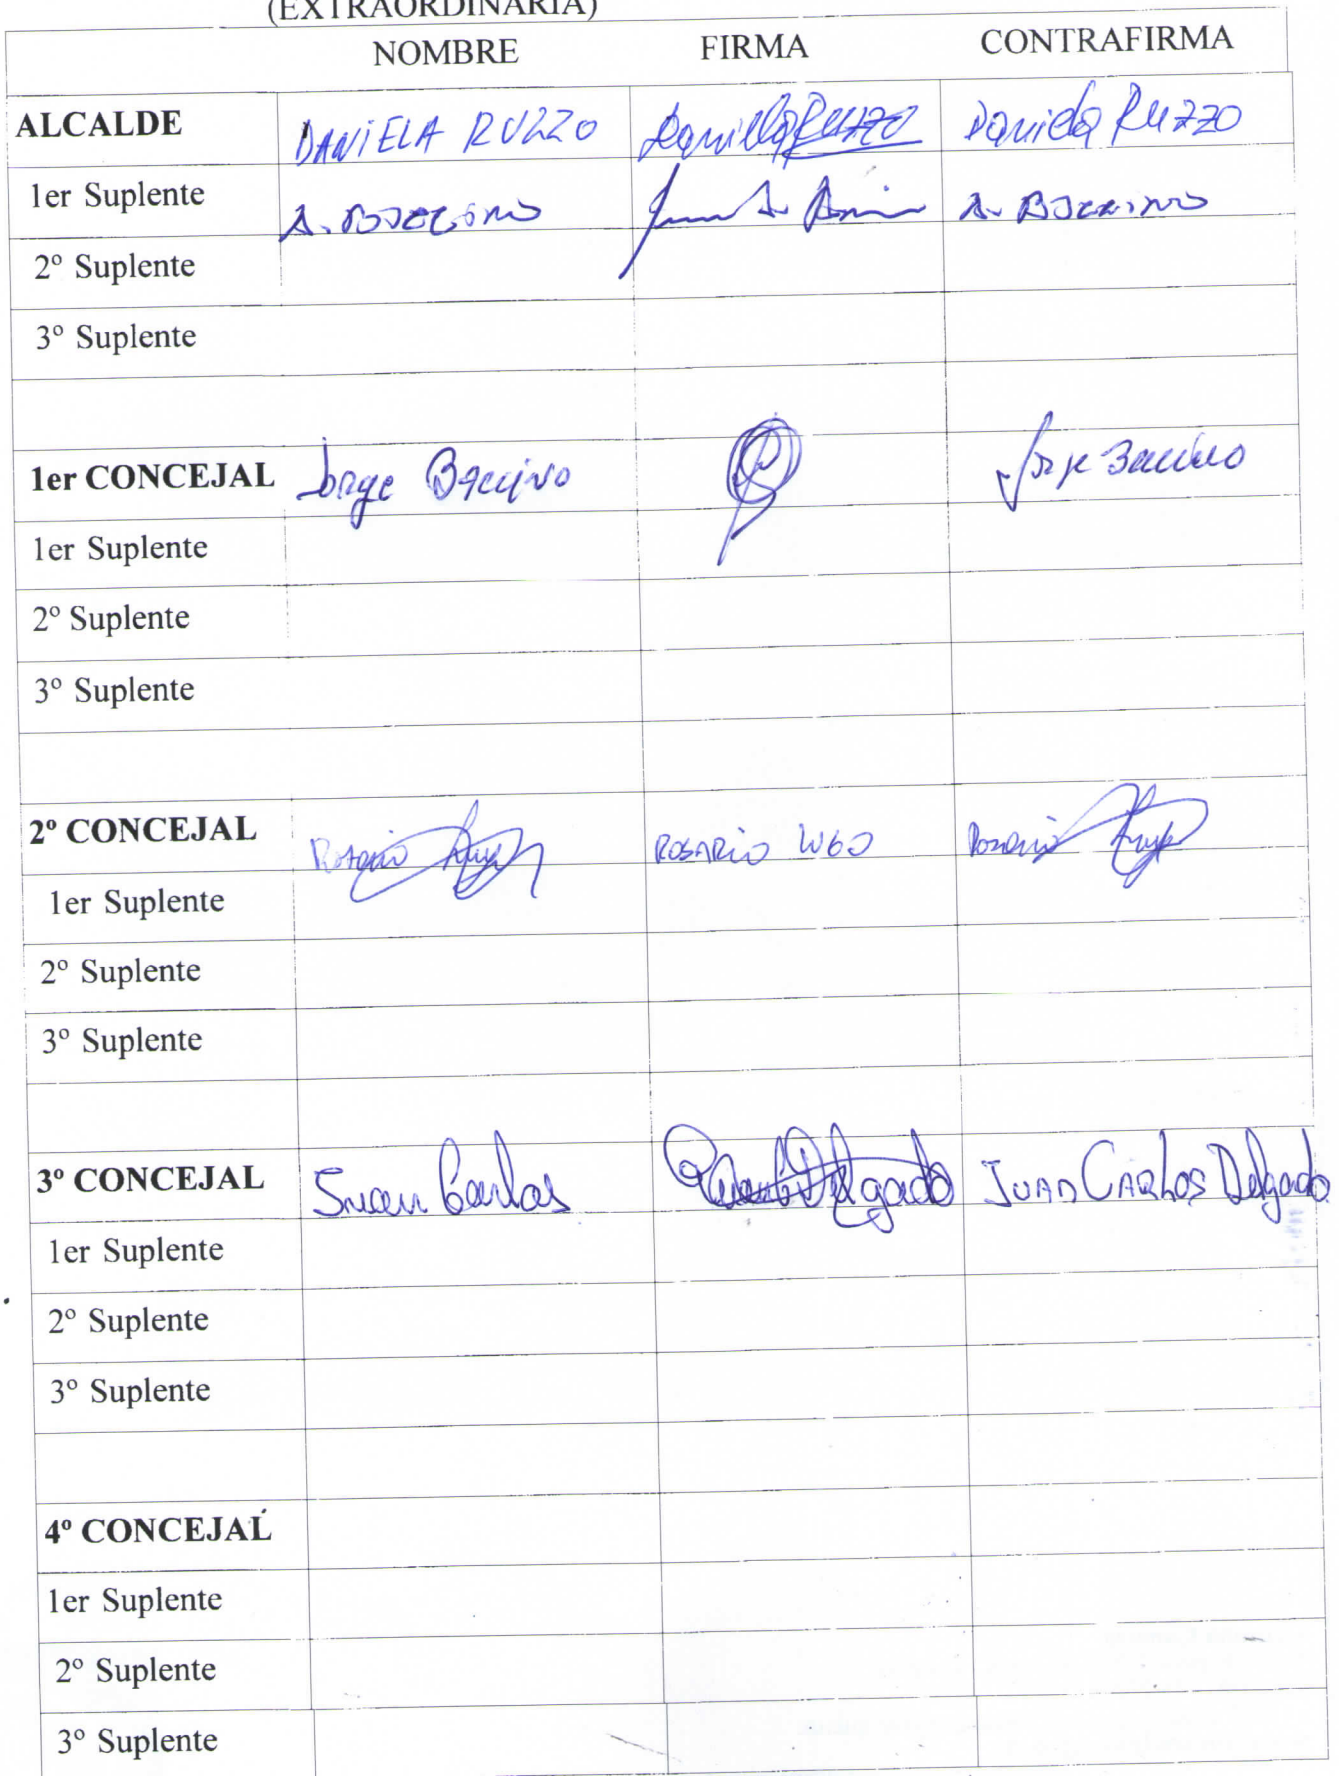 (EXTRAORDINARIA)
NOMBRE FIRMA CONTRAFIRMA
ALCALDE DANIELA RUZZO Daniela Ruzzo Daniela Ruzzo
1er Suplente A. A.
2º Suplente
3º Suplente
1er CONCEJAL Jorge Baccino Jorge Baccino
1er Suplente
2º Suplente
3º Suplente
2º CONCEJAL Rosario ROSARIO LUGO Rosario
1er Suplente
2º Suplente
3º Suplente
3º CONCEJAL Juan Carlos Delgado JUAN CARLOS Delgado
1er Suplente
2º Suplente
3º Suplente
4º CONCEJAL
1er Suplente
2º Suplente
3º Suplente